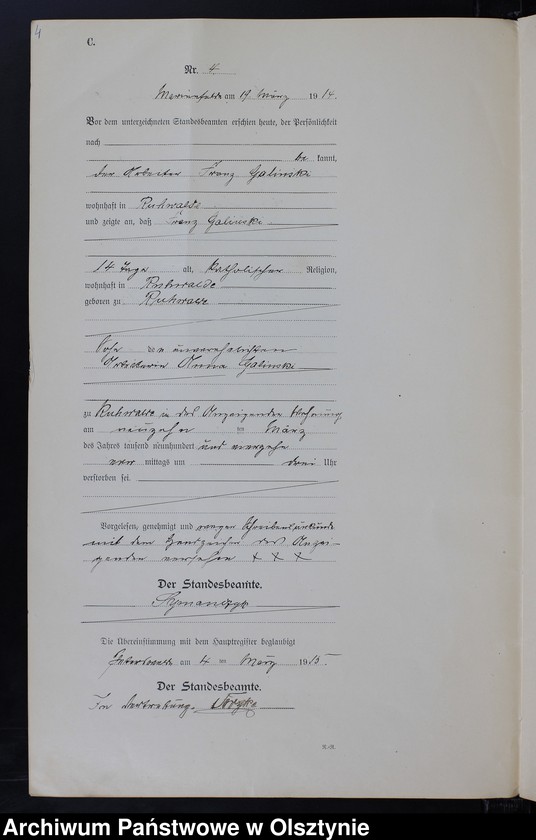 4
C.
Nr. 4.
Marienfelde am 19. März 1914.
Vor dem unterzeichneten Standesbeamten erschien heute, der Persönlichkeit
nach
be kannt,
der Arbeiter Franz Galinski
wohnhaft in Ruhwalde
und zeigte an, daß Franz Galinski
14 Tage alt, katholischer Religion,
wohnhaft in Ruhwalde
geboren zu Ruhwalde
Sohn der unverehelichten
Arbeiterin Anna Galinski
zu Ruhwalde in des Anzeigenden Wohnung
am neunzehn ten März
des Jahres tausend neunhundert und vierzehn
vor mittags um drei Uhr
verstorben sei.
Vorgelesen, genehmigt und wegen Schreibensunkunde
mit dem Handzeichen des Anzei-
genden versehen + + +
Der Standesbeamte.
Die Übereinstimmung mit dem Hauptregister beglaubigt
am 4 ten März 1915.
Der Standesbeamte.
In Vertretung.
Archiwum Państwowe w Olsztynie